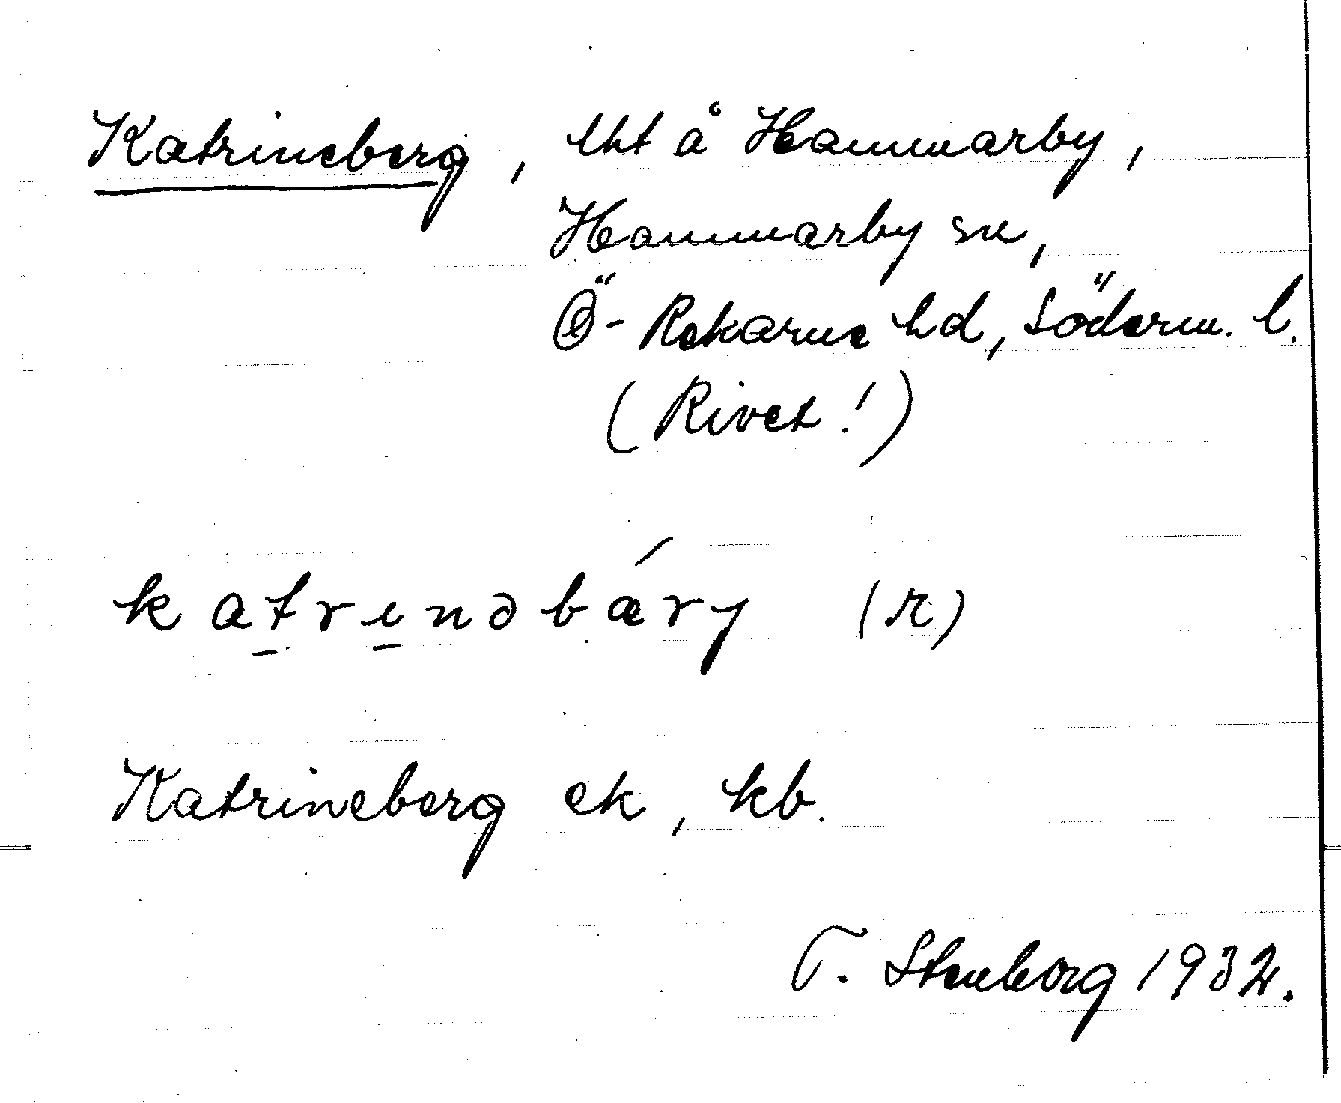 Katrineberg, lht å Hammarby,
Hammarby sn,
Ö-Rekarne hd, Söderm. l.
(Rivet!)
katrinəbǽrj (r)
Katrineberg ek, kb.
T. Stenborg 1932.